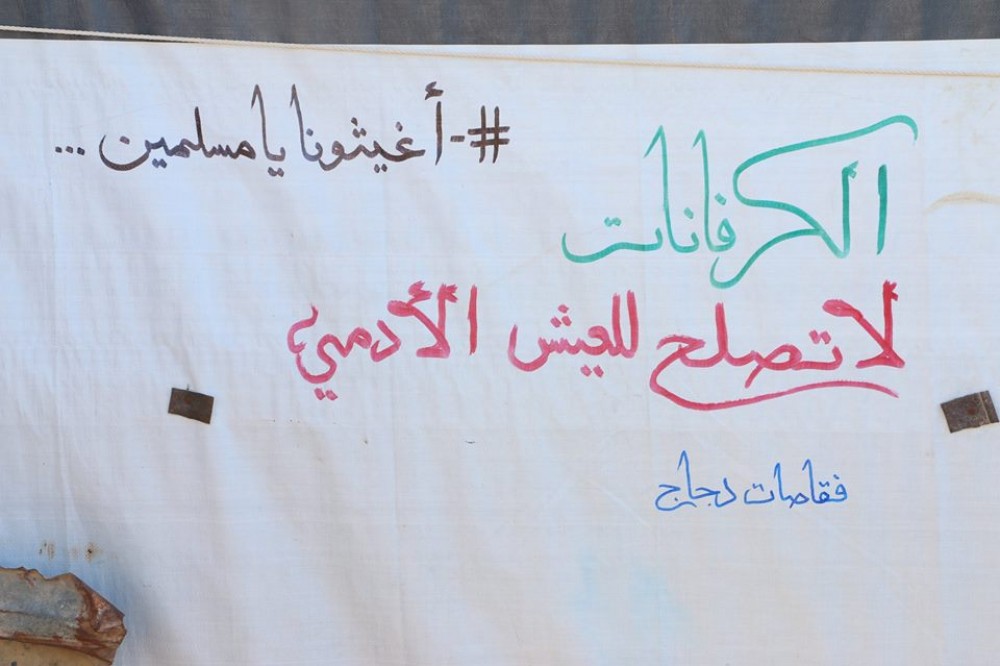 #-أغيثونا يا مسلمين...
الكرفانات
لا تصلح للعيش الأدمي
فقاصات دجاج